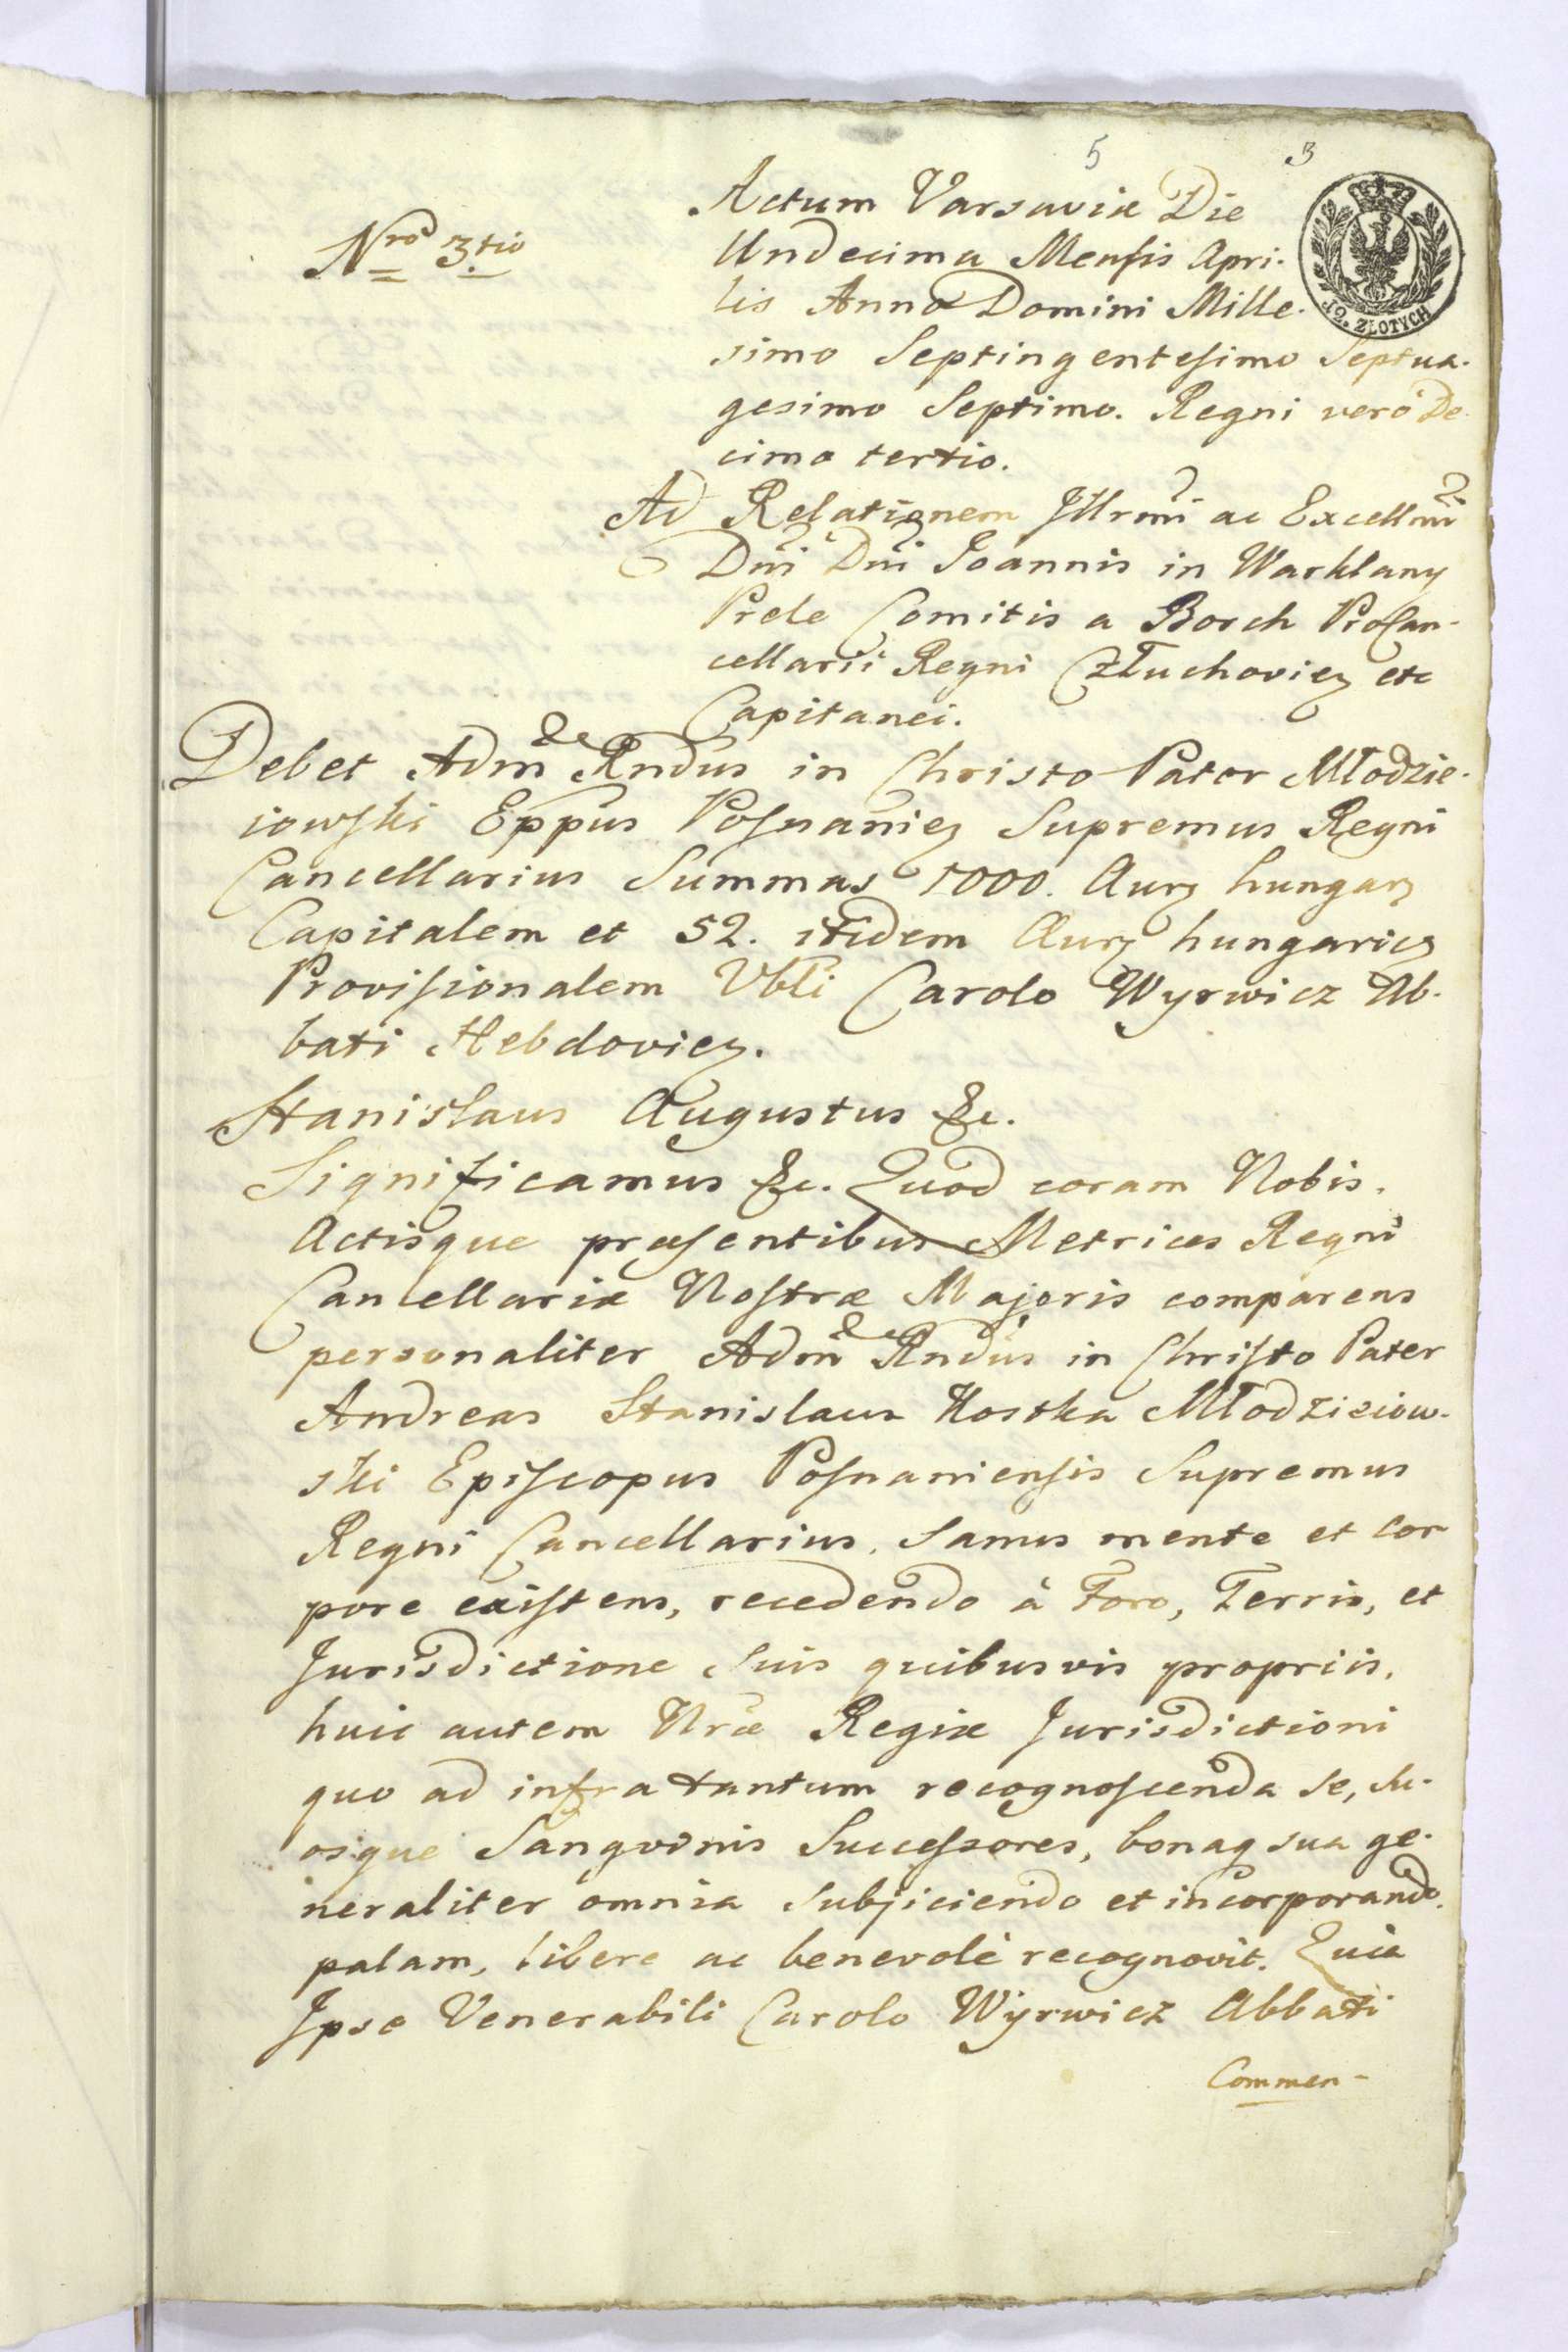 5 3
Actum Varsaviæ Die
Nro 3tio
Undecima Mensis Apri-
lis Anno Domini Mille-
12. ZŁOTYCH
simo Septingentesimo Septua-
gesimo Septimo. Regni verò De-
cimo tertio.
Ad Relationem Illrmi ac Excellmi
Dni Dni Joannis in Warklany
Prele Comitis a Borch ProCan-
cellarii Regni Człuchovien etc
Capitanei.
Debet Adm Rndus in Christo Pater Młodzie-
iowski Eppus Posnanien Supremus Regni
Cancellarius Summas 1000. Aur hungar
Capitalem et 52. itidem Aur hungaric
Provisionalem Vbli Carolo Wyrwicz Ab-
bati Hebdovien.
Stanislaus Augustus &c.
Significamus &c. Quod coram Nobis,
Actisque præsentibus Metrices Regni
Cancellariæ Nostræ Majoris comparens
personaliter Adm Rndus in Christo Pater
Andreas Stanislaus Kostka Młodzieiow-
ski Episcopus Posnaniensis Supremus
Regni Cancellarius, Sanus mente et cor
pore existens, recedendo à Foro, Terris, et
Jurisdictione Suis quibusvis propriis,
huic autem Nræ Regiæ Jurisdictioni
quo ad infra tantum recognoscenda se, su-
osque Sangvinis Successores, bonaq sua ge-
neraliter omnia Subjiciendo et incorporando.
palam, libere ac benevolè recognovit. Quia
Ipse Venerabili Carolo Wyrwicz Abbati
Commen-